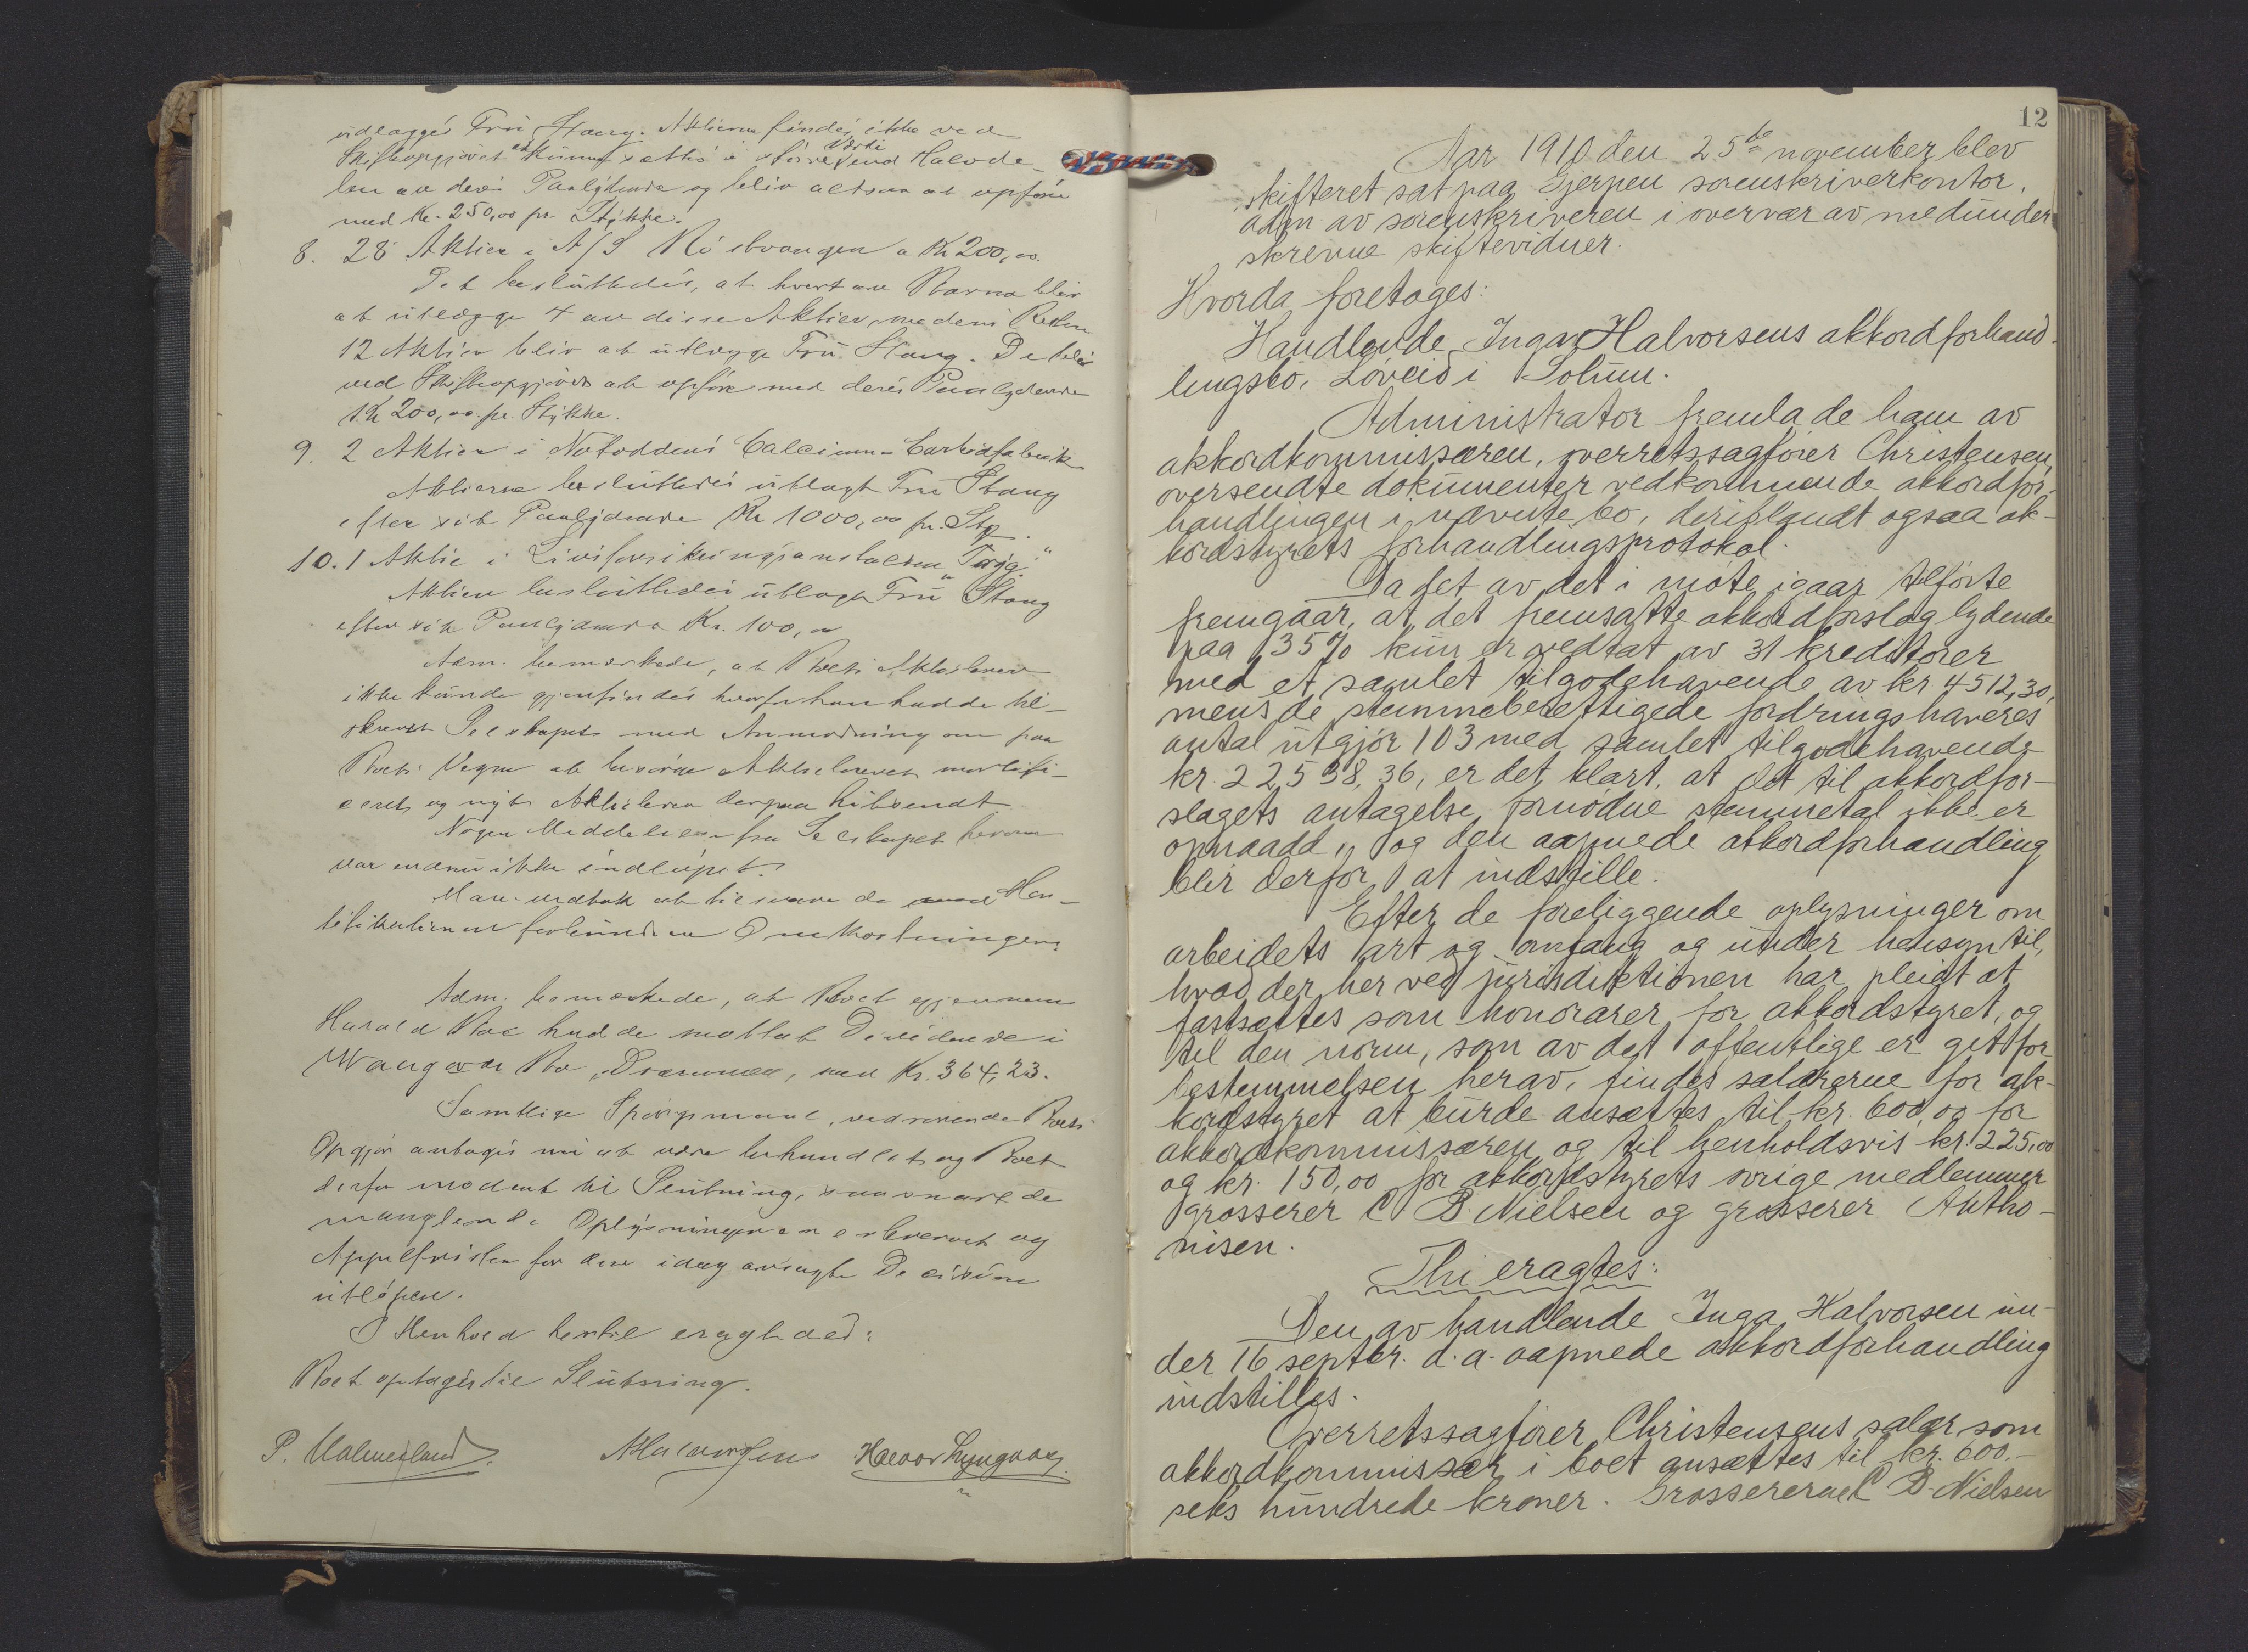 udlægges Fru Stang. Aktierne findes ikke ved
Skifteopgjøret at kunne sættes i større Værdi end Halvde-
len av deres Paalydende og bliv altsaa at opføre
med Kr. 250,00 pr Stykke.
8. 28 Aktier i A/S a Kr 200,00.
Det besluttedes, at hvert av Barna blir
at utlægge 4 av disse Aktier, medens Resten
12 Aktier bliv at utlægge Fru Stang. De blir
ved Skifteopgjøret at opføre med deres Paalydende
Kr 200,00 pr. Stykke.
9. 2 Aktier i Notoddens Calcium-Carbidfabrik
Aktierne besluttedes utlagt Fru Stang
efter sit Paalydende Kr 1000,00 pr. Stk.
10. 1 Aktie i Livsforsikringsanstalten "Tryg"
Aktien besluttedes utlagt Fru Stang
efter sit Paalydende Kr. 100,00
Adm. bemerkede, at Boets Aktiebrev
ikke kunde gjenfindes hvorfor han hadde til-
skrevet Selskapet med Anmodning om paa
Boets Vegne at besørge Aktiebrevet mortifi-
ceret og nyt Aktiebrev derpaa tilsendt
Nogen Meddelelse fra Selskapet herom
var endnu ikke indløpet.
Man vedtok at tilsvare de med Mor-
tifikationen forbundne Omkostninger.
Adm. bemerkede, at Boet gjennem
Harald Boe hadde mottat Dividende i
Bo, Drammen, med Kr. 364,23.
Samtlige Spørgsmaal, vedrørende Boets
Opgjør antages nu at være behandlet og Boet
derfor modent til Slutning, saasnart de
manglende Oplysninger er erhvervet og
Appelfristen for den idag avsagte Decision
utløpen.
I Henhold hertil eragtedes:
Boet optages til Slutning.
P. Halvorsen Halvor Lyngaas
12
Aar 1910 den 25de november blev
skifteret sat paa Gjerpen sorenskriverkontor,
adm. av sorenskriveren i overvær av medunder
skrevne skiftevidner.
Hvorda foretoges:
Handlende Inga Halvorsens akkordforhand-
lingsbo, Løveid i Solum.
Administrator fremla de ham av
akkordkommissæren, overretssagfører Christensen,
oversendte dokumenter vedkommende akkordfor-
handlingen i nævnte bo, deriblandt ogsaa ak-
kordstyrets forhandlingsprotokol.
Da det av det i møte igaar tilførte
fremgaar, at det fremsatte akkordforslag lydende
paa 35% kun er vedtat av 31 kreditorer
med et samlet tilgodehavende av kr. 4512,30,
mens de stemmeberettigede fordringshaveres
antal utgjør 103 med samlet tilgodehavende
kr. 22538,36, er det klart, at det til akkordfor-
slagets antagelse fornødne stemmetal ikke er
opnaadd, og den aapnede akkordforhandling
blir derfor at indstille.
Efter de foreliggende oplysninger om
arbeidets art og omfang og under hensyn til,
hvad der her ved jurisdiktionen har pleidt at
fastsættes som honorarer for akkordstyret, og
til den norm, som av det offentlige er git for
bestemmelsen herav, findes salærerne for ak-
kordstyret at burde ansættes til kr. 600,00 for
akkordkommissæren og til henholdsvis kr. 225,00
og kr. 150,00 for akkordstyrets øvrige medlemmer
grosserer C B. Nielsen og grosserer Antho-
nisen.
Thi eragtes:
Den av handlende Inga Halvorsen un-
der 16 septbr. d. a. aapnede akkordforhandling
indstilles.
Overretssagfører Christensens salær som
akkordkommissær i boet ansættes til kr. 600.-
seks hundrede kroner. Grossererne C B. Nielsen